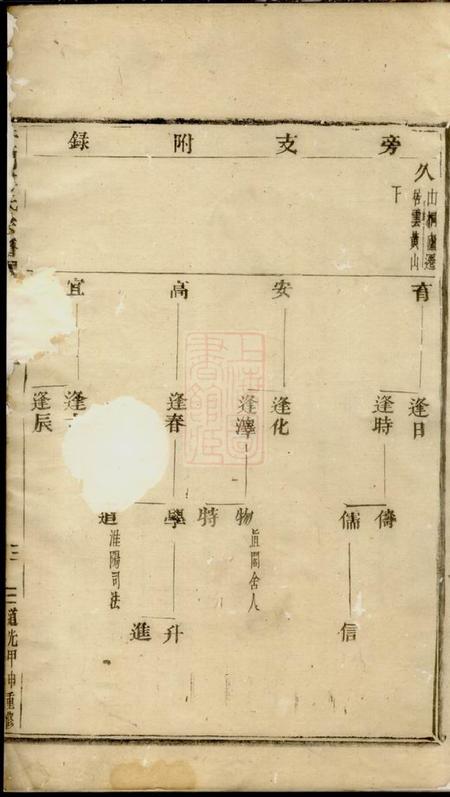 旁支附録
久
由桐廬遷
居雲黄山
下
育
安
高
宜
逢日
逢時
逢化
逢澤
逢春
逢
逢辰
儔
儒
物
直閣舍人
特
學
道
淮陽司法
信
升
進
道光甲申重修
上海圖書館藏